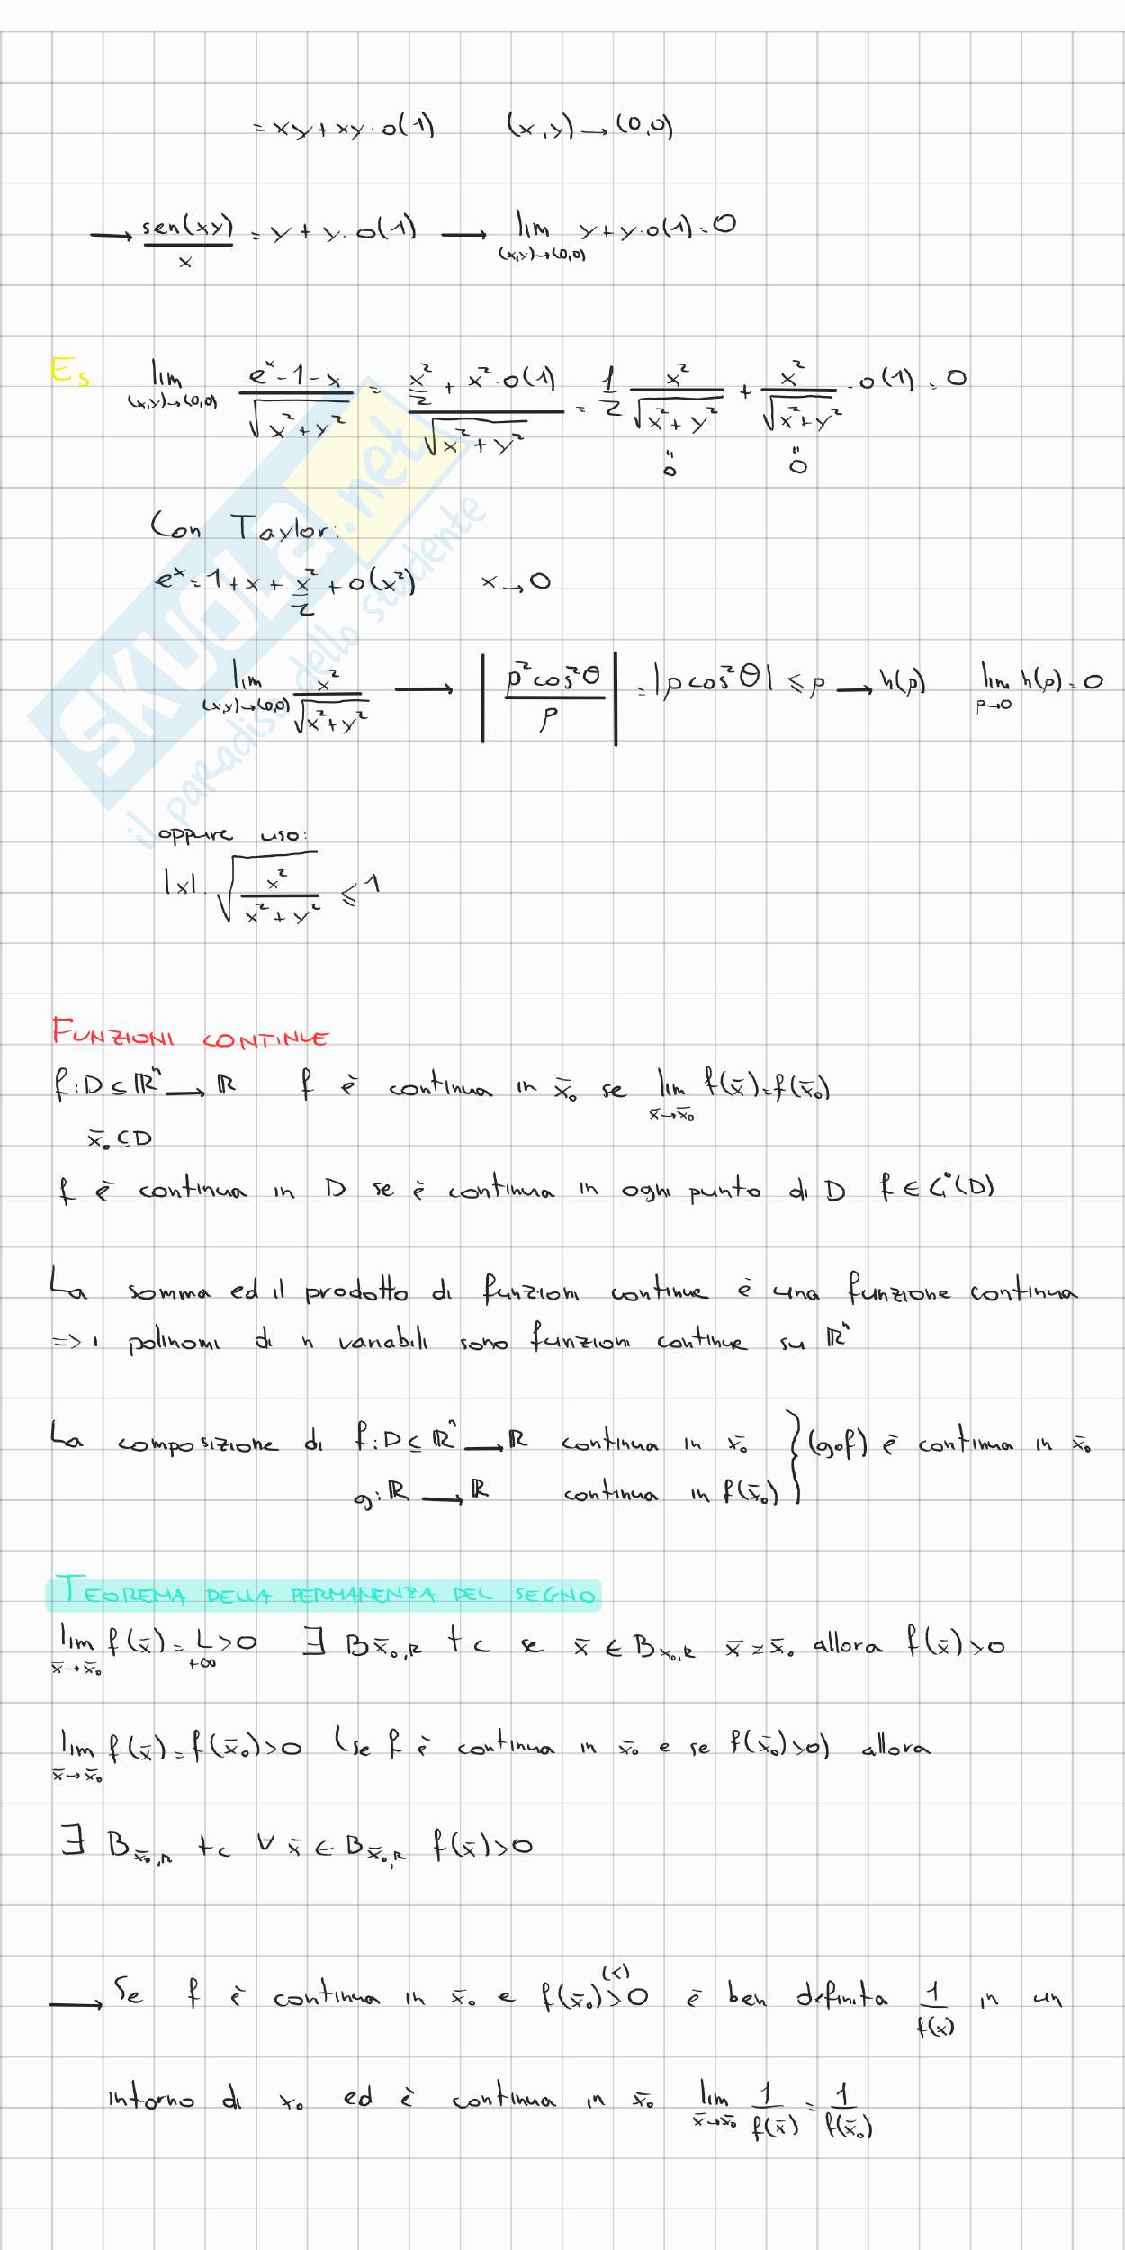 = xy + xy · o(1) (x,y) → (0,0)
→ sen(xy)/x = y + y · o(1) → lim (x,y)→(0,0) y + y · o(1) = 0
Es lim (x,y)→(0,0) (e^x - 1 - x)/√(x² + y²) = (x²/2 + x² · o(1))/√(x² + y²) = 1/2 x²/√(x² + y²) + x²/√(x² + y²) · o(1) = 0
" 0 " 0
Con Taylor:
e^x = 1 + x + x²/2 + o(x²) x → 0
lim (x,y)→(0,0) x²/√(x² + y²) → |ρ² cos²θ / ρ| = |ρ cos²θ| ≤ ρ → h(ρ) lim ρ→0 h(ρ) = 0
oppure uso:
|x| · √(x²/(x² + y²)) ≤ 1
FUNZIONI CONTINUE
f: D ⊆ ℝⁿ → ℝ f è continua in x̄₀ se lim x̄→x̄₀ f(x̄) = f(x̄₀)
x̄₀ ⊆ D
f è continua in D se è continua in ogni punto di D f ∈ C°(D)
La somma ed il prodotto di funzioni continue è una funzione continua
=> i polinomi di n variabili sono funzioni continue su ℝⁿ
La composizione di f: D ⊆ ℝⁿ → ℝ continua in x̄₀ } (g∘f) è continua in x̄₀
g: ℝ → ℝ continua in f(x̄₀)
TEOREMA DELLA PERMANENZA DEL SEGNO
lim x̄→x̄₀ f(x̄) = L > 0 ∃ B x̄₀,R tc se x̄ ∈ B x₀,R x̄ ≠ x̄₀ allora f(x̄) > 0
+∞
lim x̄→x̄₀ f(x̄) = f(x̄₀) > 0 (se f è continua in x̄₀ e se f(x̄₀) > 0) allora
∃ B x̄₀,R tc ∀ x̄ ∈ B x̄₀,R f(x̄) > 0
(<)
→ Se f è continua in x̄₀ e f(x̄₀) > 0 è ben definita 1/f(x) in un
intorno di x₀ ed è continua in x̄₀ lim x̄→x̄₀ 1/f(x̄) = 1/f(x̄₀)
SKUOLA.net
il paradiso dello studente